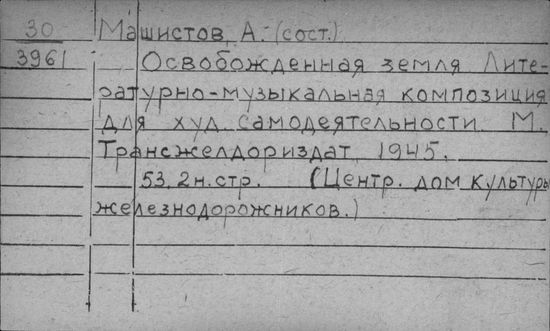 30 Машистов, А. (сост.)
3961 Освобожденная земля Лите-
ратурно-музыкальная композиция
для худ. самодеятельности. М.
Трансжелдориздат, 1945.
53, 2н.стр. (Центр. дом культуры
железнодорожников.)